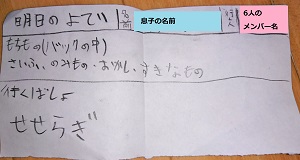 明日のよてい 名前 息子の名前 6人のメンバー名
もちもの(リバックの中)
さいふ、のみもの・おかし、すきなもの
行くばしょ
せせらぎ